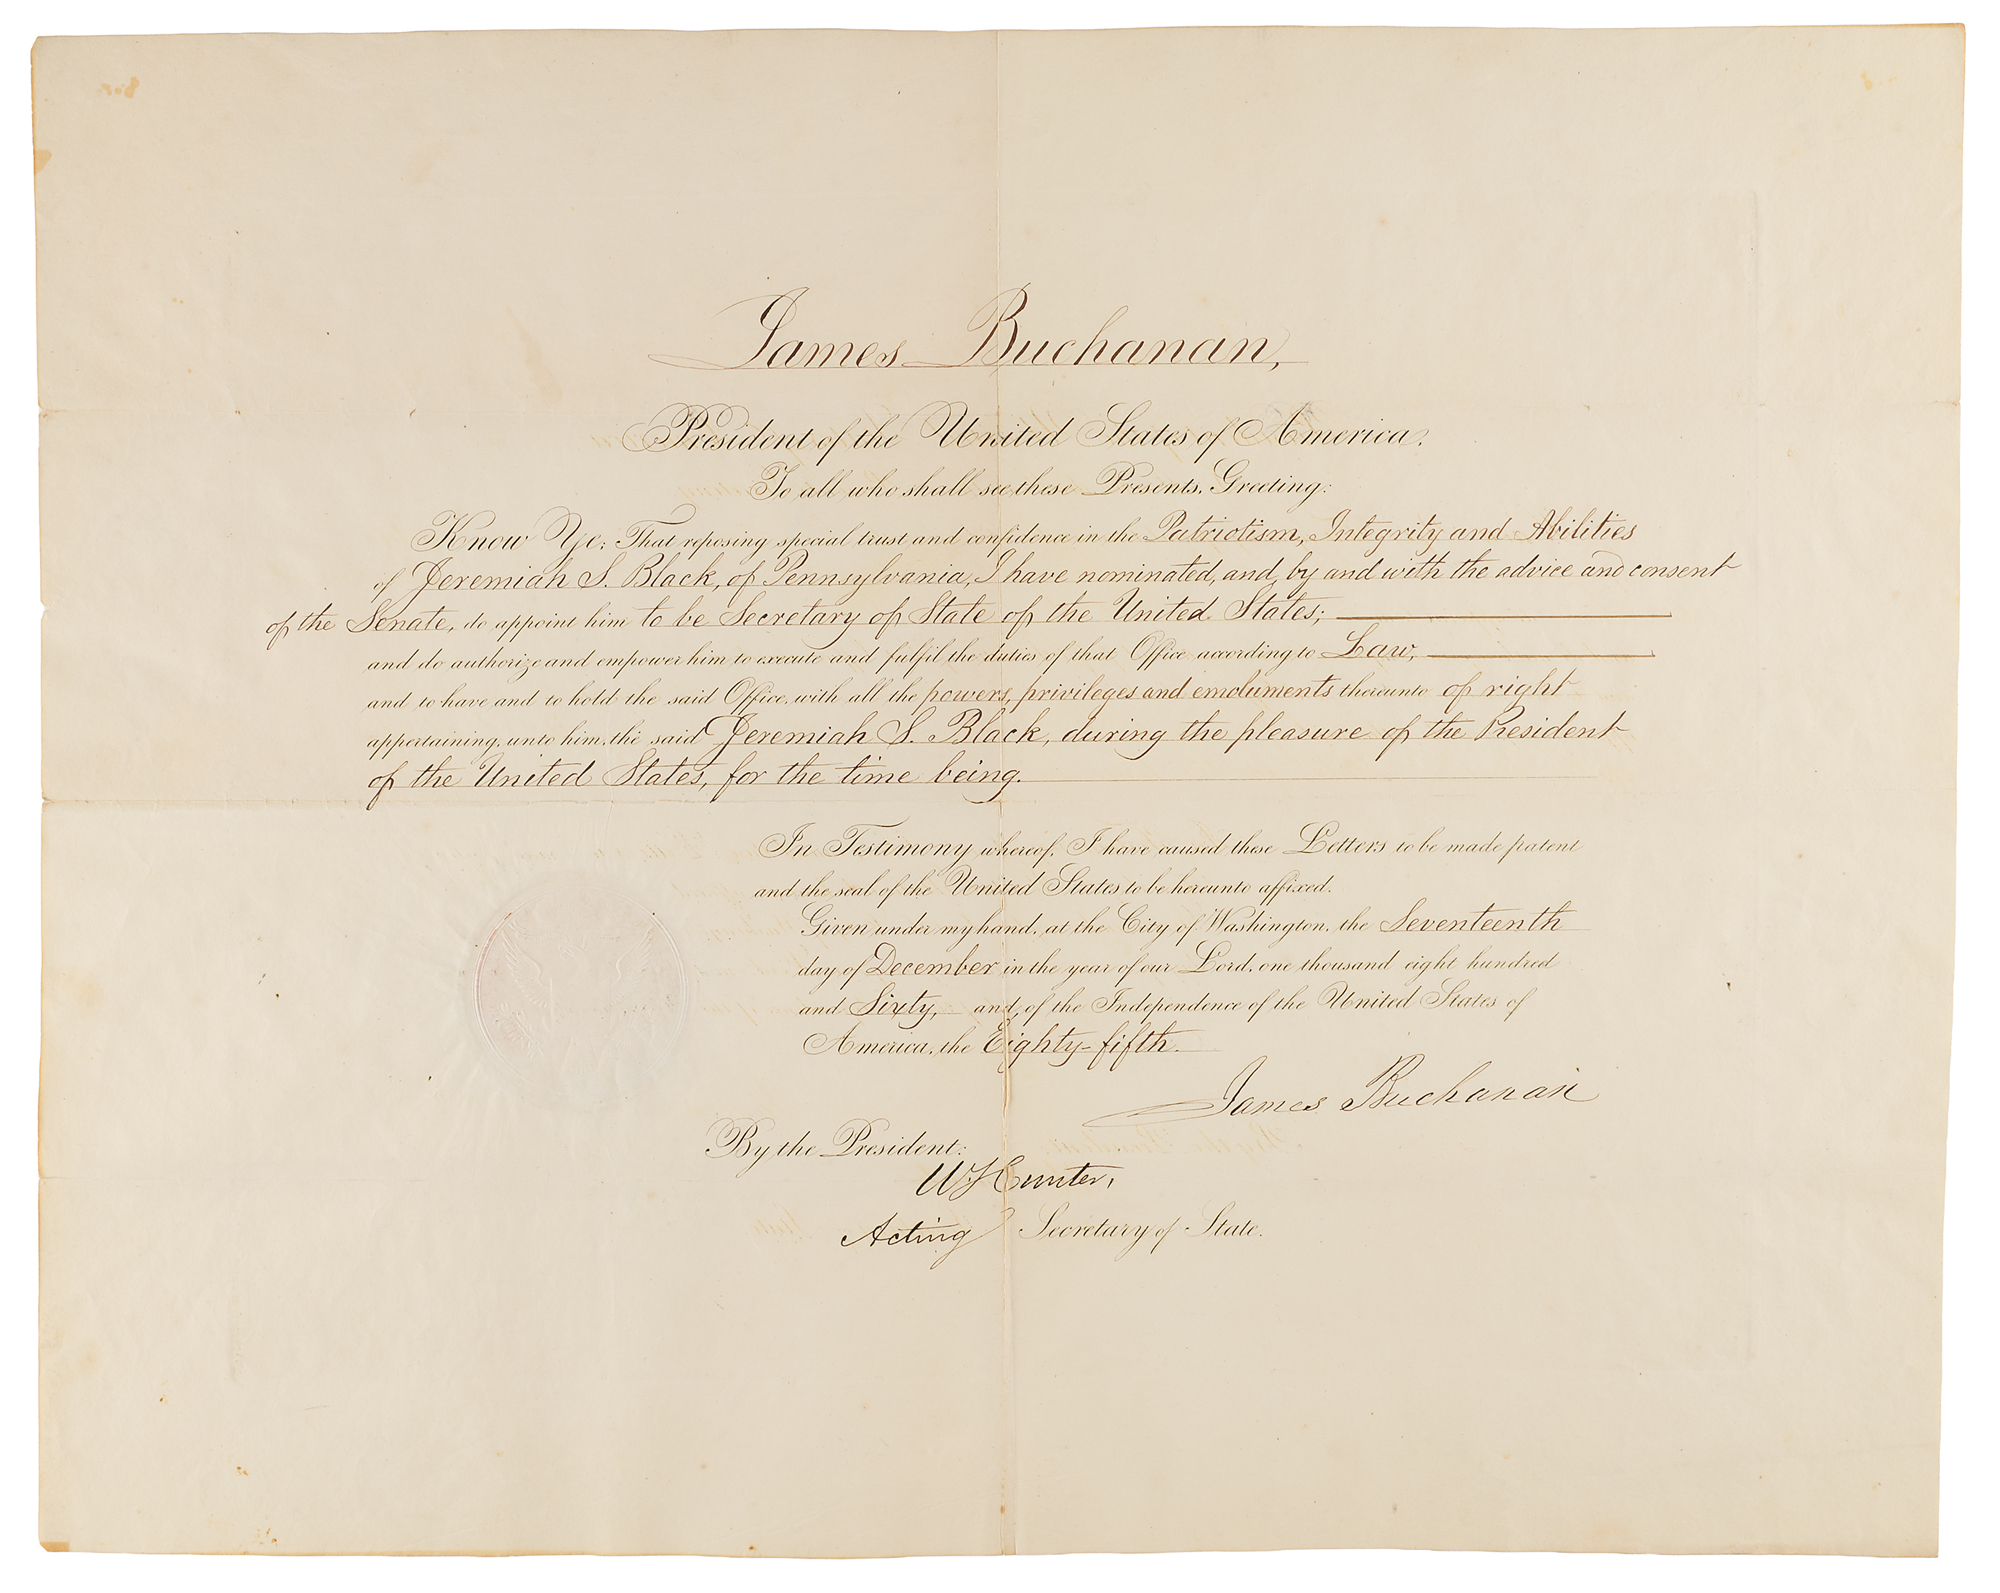 James Buchanan,
President of the United States of America.
To all who shall see these Presents, Greeting:
Know Ye; That reposing special trust and confidence in the Patriotism, Integrity and Abilities
of Jeremiah S. Black, of Pennsylvania, I have nominated, and, by and with the advice and consent
of the Senate, do appoint him to be Secretary of State of the United States;
and do authorize and empower him to execute and fulfil the duties of that Office according to Law,
and to have and to hold the said Office, with all the powers, privileges and emoluments thereunto of right
appertaining, unto him, the said Jeremiah S. Black, during the pleasure of the President
of the United States, for the time being.
In Testimony whereof, I have caused these Letters to be made patent
and the seal of the United States to be hereunto affixed.
Given under my hand, at the City of Washington, the Seventeenth
day of December in the year of our Lord, one thousand eight hundred
and Sixty, and, of the Independence of the United States of
America, the Eighty-fifth.
James Buchanan
By the President:
W Hunter,
Acting Secretary of State.